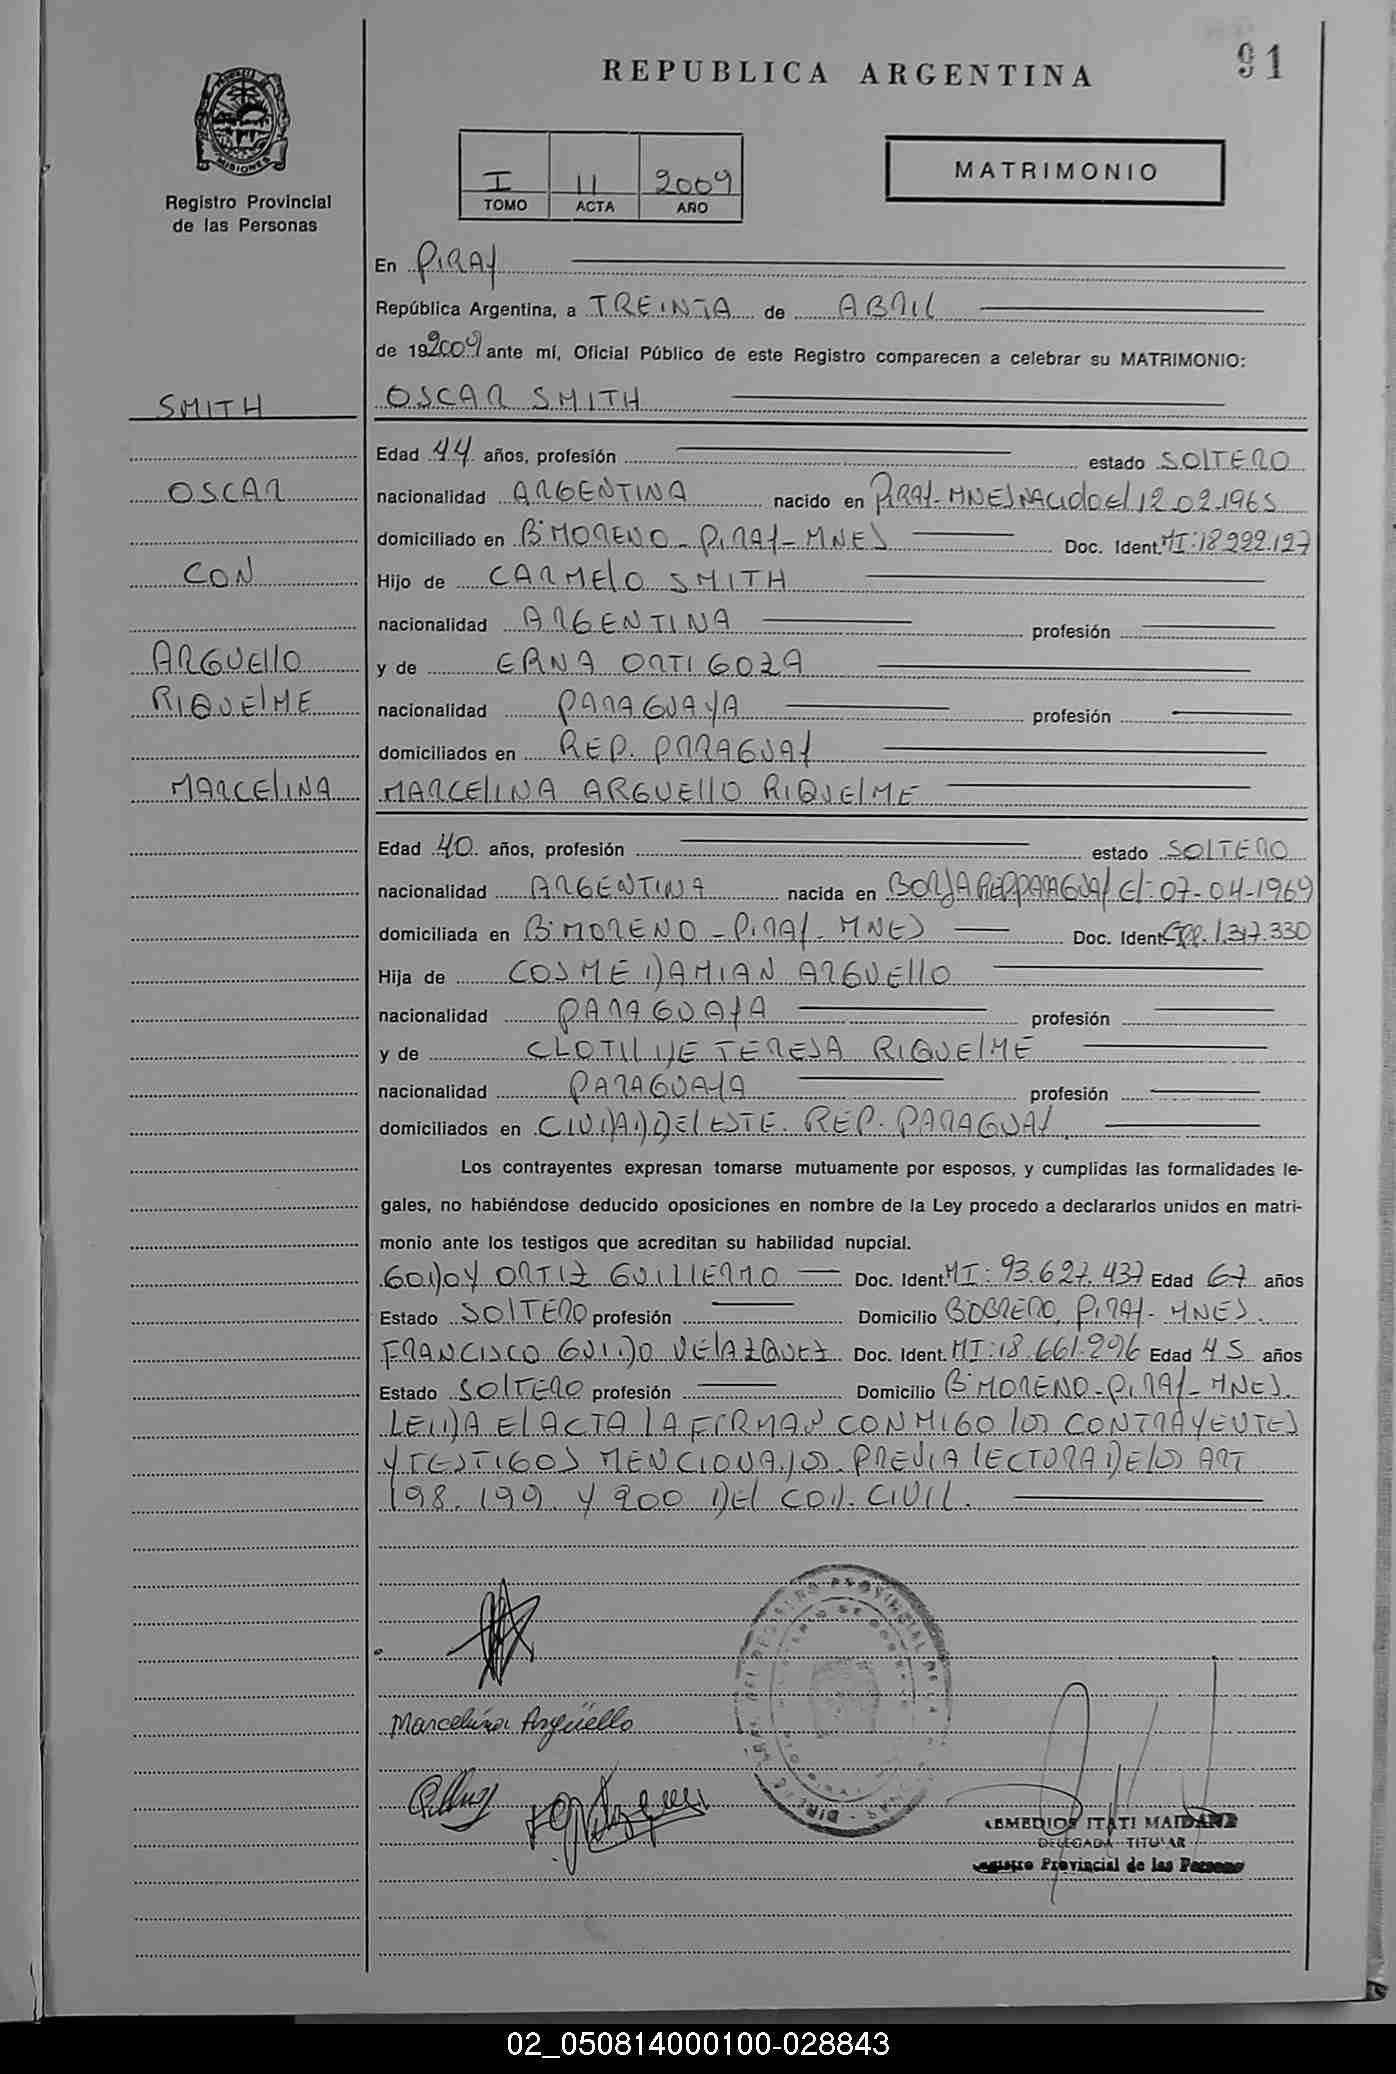 REPUBLICA ARGENTINA
91
MISIONES
Registro Provincial
de las Personas
I 11 2009
TOMO ACTA AÑO
MATRIMONIO
En PIRAY
República Argentina, a TREINTA de ABRIL
de 192009 ante mí, Oficial Público de este Registro comparecen a celebrar su MATRIMONIO:
SMITH
OSCAR
CON
ARGUELLO
RIQUELME
MARCELINA
OSCAR SMITH
Edad 44 años, profesión estado SOLTERO
nacionalidad ARGENTINA nacido en PIRAY-MNES NACIDO El 12.02.1965
domiciliado en Bº MORENO - PIRAY - MNES Doc. Ident. MI: 18.222.127
Hijo de CARMELO SMITH
nacionalidad ARGENTINA profesión
y de ERNA ORTIGOZA
nacionalidad PARAGUAYA profesión
domiciliados en REP. PARAGUAY
MARCELINA ARGUELLO RIQUELME
Edad 40 años, profesión estado SOLTERO
nacionalidad ARGENTINA nacida en BORJA REP PARAGUAY El: 07-04-1969
domiciliada en Bº MORENO - PIRAY - MNES Doc. Ident. 1.317.330
Hija de COSME DAMIAN ARGUELLO
nacionalidad PARAGUAYA profesión
y de CLOTILDE TERESA RIQUELME
nacionalidad PARAGUAYA profesión
domiciliados en CIUDAD DEL ESTE. REP. PARAGUAY.
Los contrayentes expresan tomarse mutuamente por esposos, y cumplidas las formalidades le-
gales, no habiéndose deducido oposiciones en nombre de la Ley procedo a declararlos unidos en matri-
monio ante los testigos que acreditan su habilidad nupcial.
GODOY ORTIZ GUILLERMO Doc. Ident. MI: 93.627.437 Edad 67 años
Estado SOLTERO profesión Domicilio Bº OBRERO, PIRAY - MNES.
FRANCISCO GUIDO VELAZQUEZ Doc. Ident. MI: 18.661.296 Edad 45 años
Estado SOLTERO profesión Domicilio Bº MORENO - PIRAY - MNES.
LEIDA El ACTA LA FIRMAN CONMIGO LOS CONTRAYENTES
Y TESTIGOS MENCIONADOS. PREVIA LECTURA DE LOS ART
198. 199. Y 200 DEL COD. CIVIL.
Marcelina Argüello
REMEDIOS ITATI MAIDANA
DELEGADA TITULAR
Registro Provincial de las Personas
02_050814000100-028843